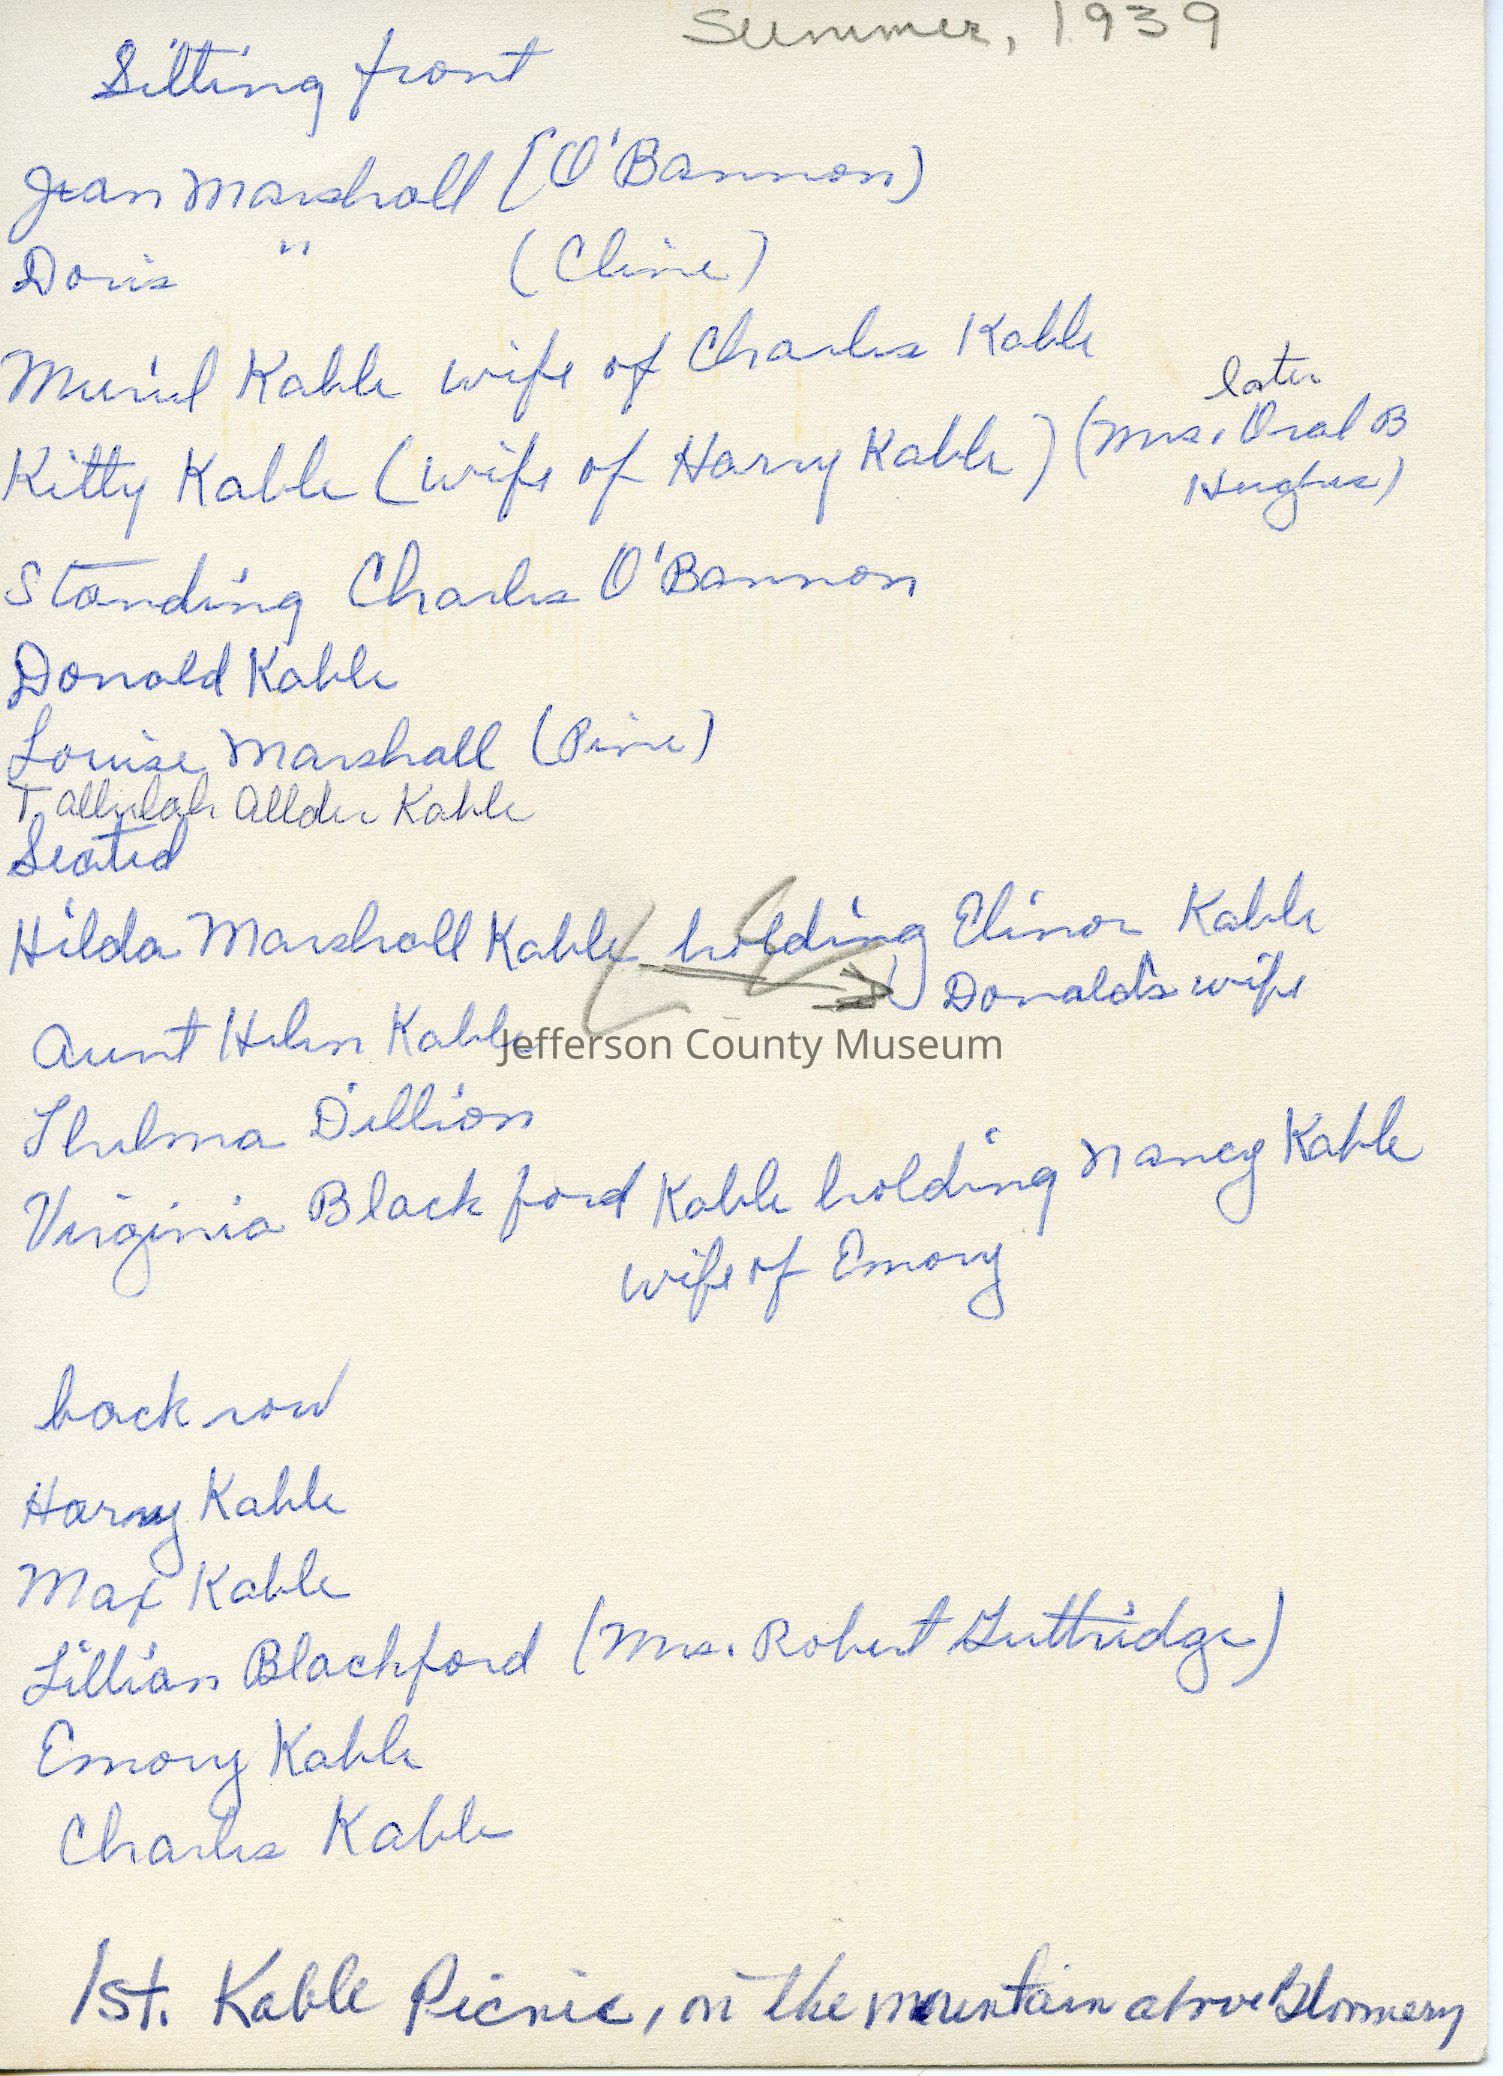 Summer, 1939
Sitting front
Jean Marshall (O'Bannon)
Doris " (Cline)
Muriel Kable wife of Charles Kable
later
Kitty Kable (wife of Harry Kable) (Mrs. Oral B
Hughes)
Standing Charles O'Bannon
Donald Kable
Louise Marshall (Pine)
Tallulah Allder Kable
Seated
Hilda Marshall Kable holding Elinor Kable
Donald's wife
Aunt Helen Kable
Jefferson County Museum
Thelma Dillion
Virginia Blackford Kable holding Nancy Kable
wife of Emory
back row
Harry Kable
Max Kable
Lillian Blackford (Mrs. Robert Guttridge)
Emory Kable
Charles Kable
1st. Kable Picnic, on the mountain above Bloomery